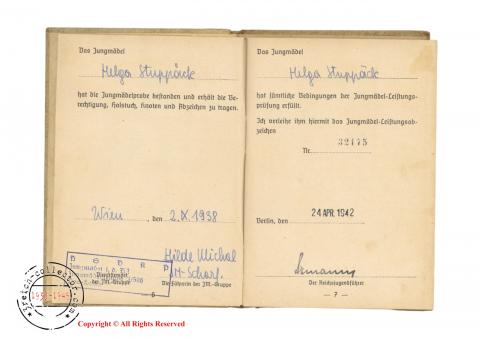 Das Jungmädel
Helga Stuppäck
hat die Jungmädelprobe bestanden und erhält die Be-
rechtigung, Halstuch, Knoten und Abzeichen zu tragen.
Wien, den 2.X.1938
Hilde Michal
JM-Scharf.
Dienststempel
der JM.-Gruppe
Die Führerin der JM.-Gruppe
6
Das Jungmädel
Helga Stuppäck
hat sämtliche Bedingungen der Jungmädel-Leistungs-
prüfung erfüllt.
Ich verleihe ihm hiermit das Jungmädel-Leistungsab-
zeichen
Nr. 32175
Berlin, den 24 APR. 1942
Der Reichsjugendführer
– 7 –
3reich-collector.com
1933-1945
Copyright © All Rights Reserved